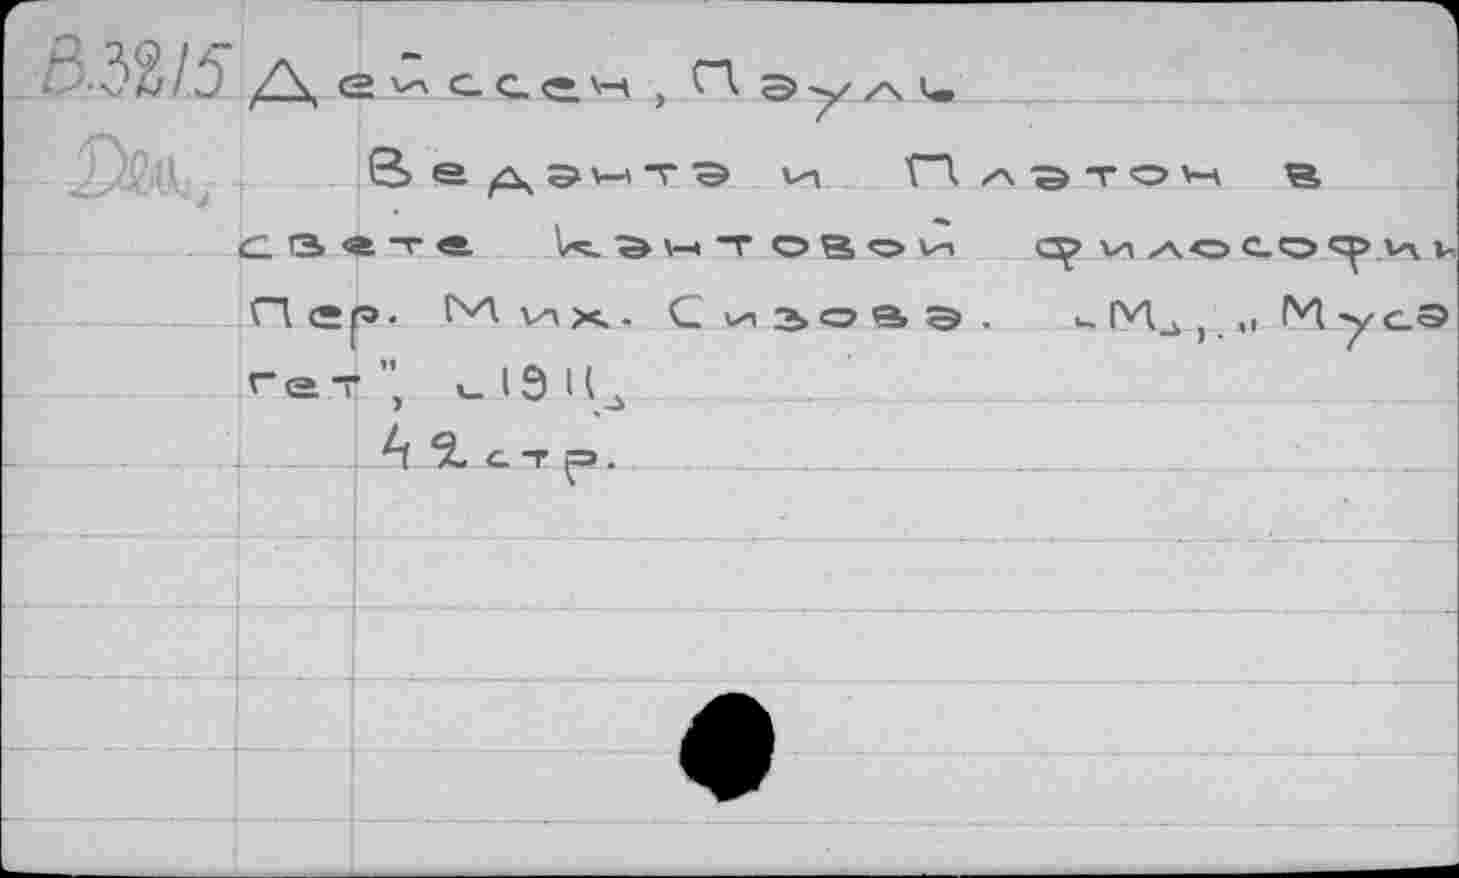 В.3215 Дейссен, Пауль
Веданта и Платон в
свете Кантовой философии
Пер. Мих. Сизова. [М], „Муса
гет", [1911]
42 стр.